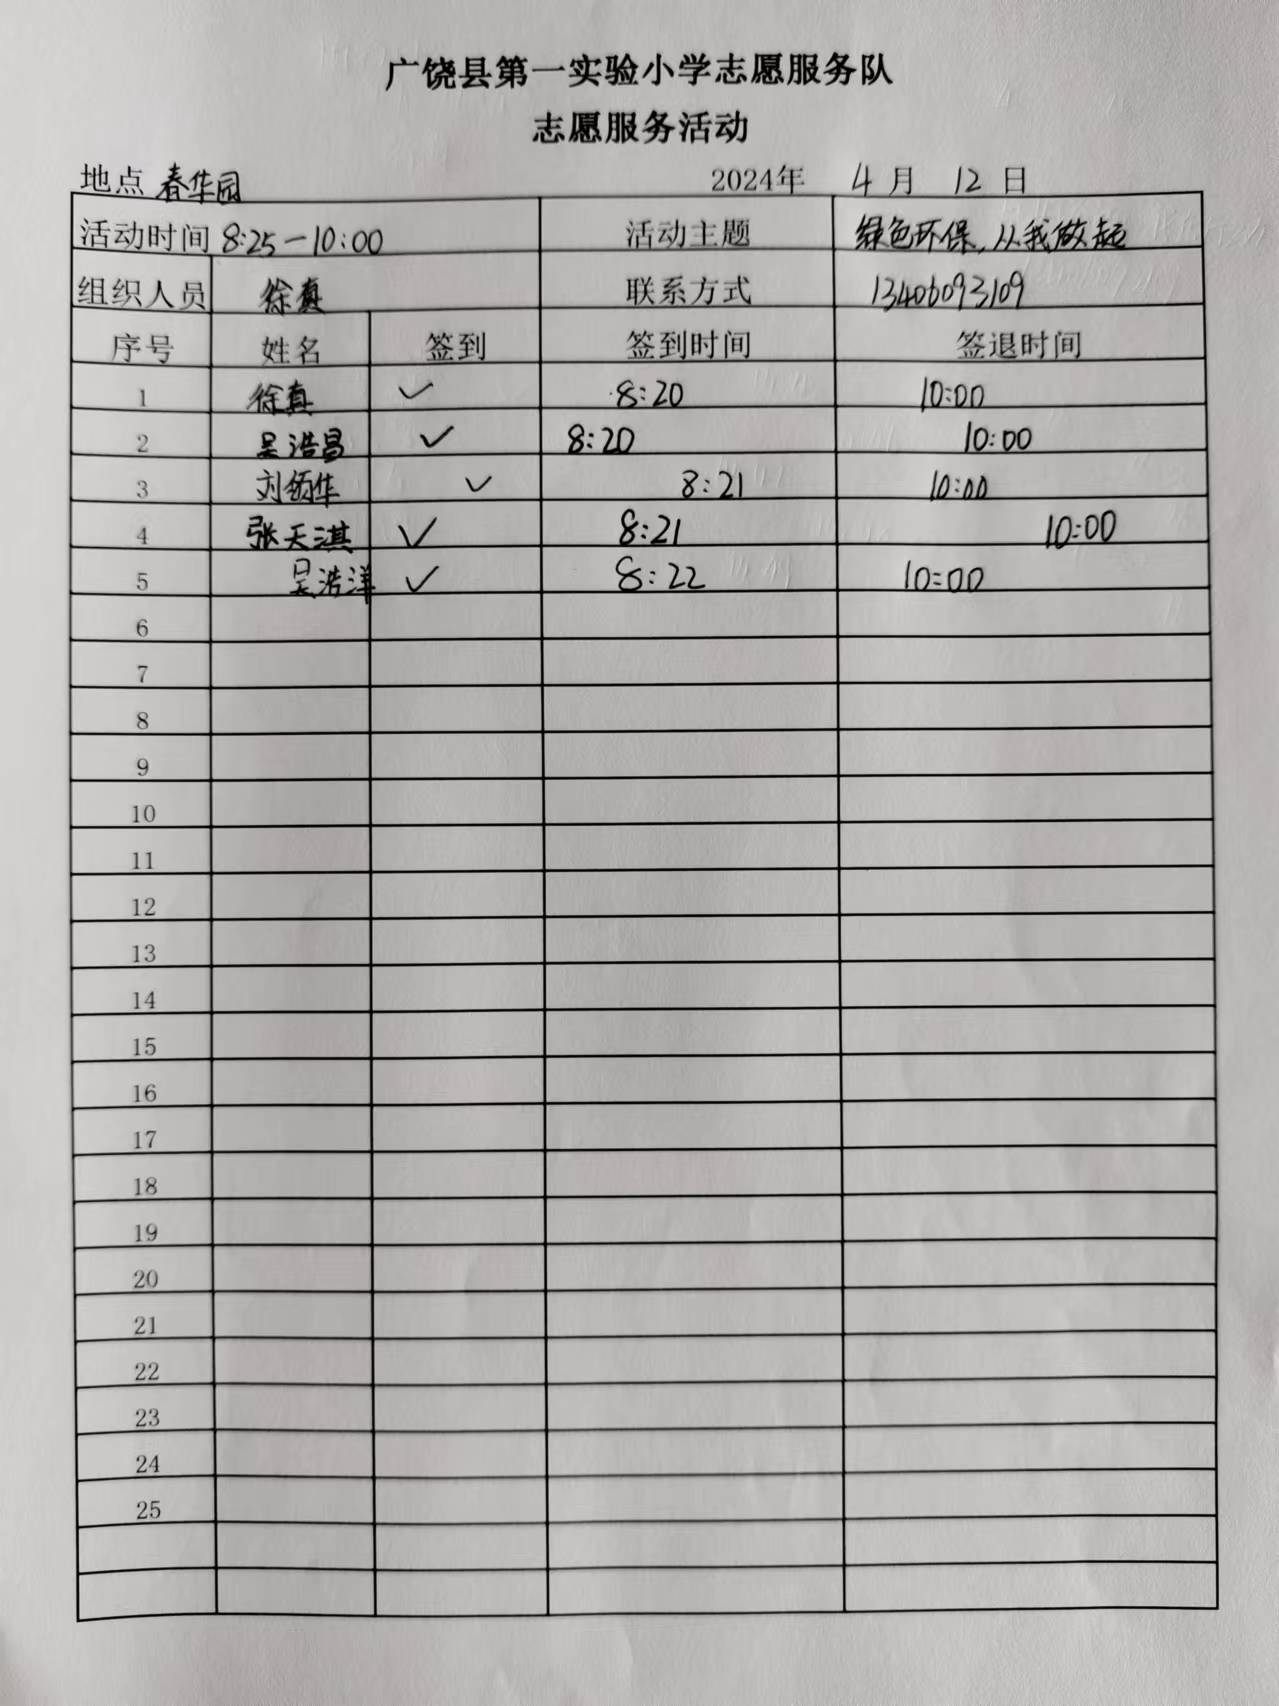 广饶县第一实验小学志愿服务队
志愿服务活动
地点 春华园 2024年 4 月 12 日
活动时间 8:25-10:00 活动主题 绿色环保,从我做起
组织人员 徐真 联系方式 13406093109
序号 姓名 签到 签到时间 签退时间
1 徐真 ✓ 8:20 10:00
2 吴浩昌 ✓ 8:20 10:00
3 ✓ 8:21 10:00
4 张天淇 ✓ 8:21 10:00
5 吴浩洋 ✓ 8:22 10:00
6
7
8
9
10
11
12
13
14
15
16
17
18
19
20
21
22
23
24
25